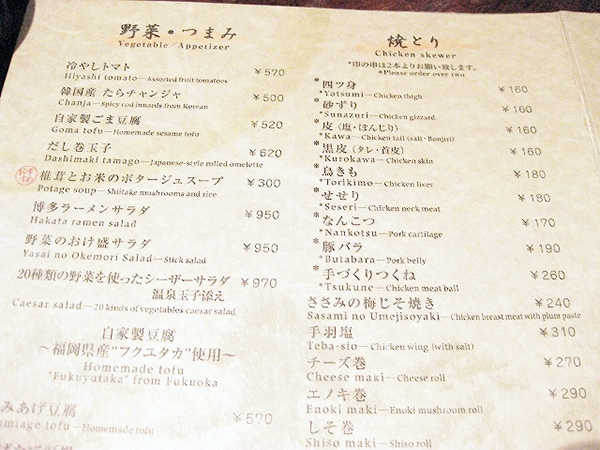 野菜・つまみ
Vegetable / Appetizer
冷やしトマト ¥570
Hiyashi tomato—Assorted fruit tomatoes
韓国産 たらチャンジャ ¥500
Chanja—Spicy cod innards from Korean
自家製ごま豆腐 ¥520
Goma tofu—Homemade sesame tofu
だし巻玉子 ¥620
Dashimaki tamago—Japanese-style rolled omelette
椎茸とお米のポタージュスープ ¥300
Potage soup—Shiitake mushrooms and rice
博多ラーメンサラダ ¥950
Hakata ramen salad
野菜のおけ盛サラダ ¥950
Yasai no Okemori Salad—Stick salad
20種類の野菜を使ったシーザーサラダ ¥970
温泉玉子添え
Caesar salad—20 kinds of vegetables caesar salad
自家製豆腐
～福岡県産“フクユタカ”使用～
Homemade tofu
"Fukuyutaka" from Fukuoka
みあげ豆腐 ¥570
miage tofu—Homemade tofu
焼とり
Chicken skewer
*印の串は2本よりお願い致します。
*Please order over two
*四ツ身 ¥160
*Yotsumi—Chicken thigh
*砂ずり ¥160
*Sunazuri—Chicken gizzard
*皮（塩・ぼんじり） ¥160
*Kawa—Chicken tail (salt・Bonjiri)
*黒皮（タレ・首皮） ¥160
*Kurokawa—Chicken skin
*鳥きも ¥180
*Torikimo—Chicken liver
*せせり ¥180
*Seseri—Chicken neck meat
*なんこつ ¥170
*Nankotsu—Pork cartilage
*豚バラ ¥190
*Butabara—Pork belly
*手づくりつくね ¥260
*Tsukune—Chicken meat ball
ささみの梅じそ焼き ¥240
Sasami no Umejisoyaki—Chicken breast meat with plum paste
手羽塩 ¥310
Teba-sio—Chicken wing (with salt)
チーズ巻 ¥270
Cheese maki—Cheese roll
エノキ巻 ¥290
Enoki maki—Enoki mushroom roll
しそ巻 ¥290
Shiso maki—Shiso roll